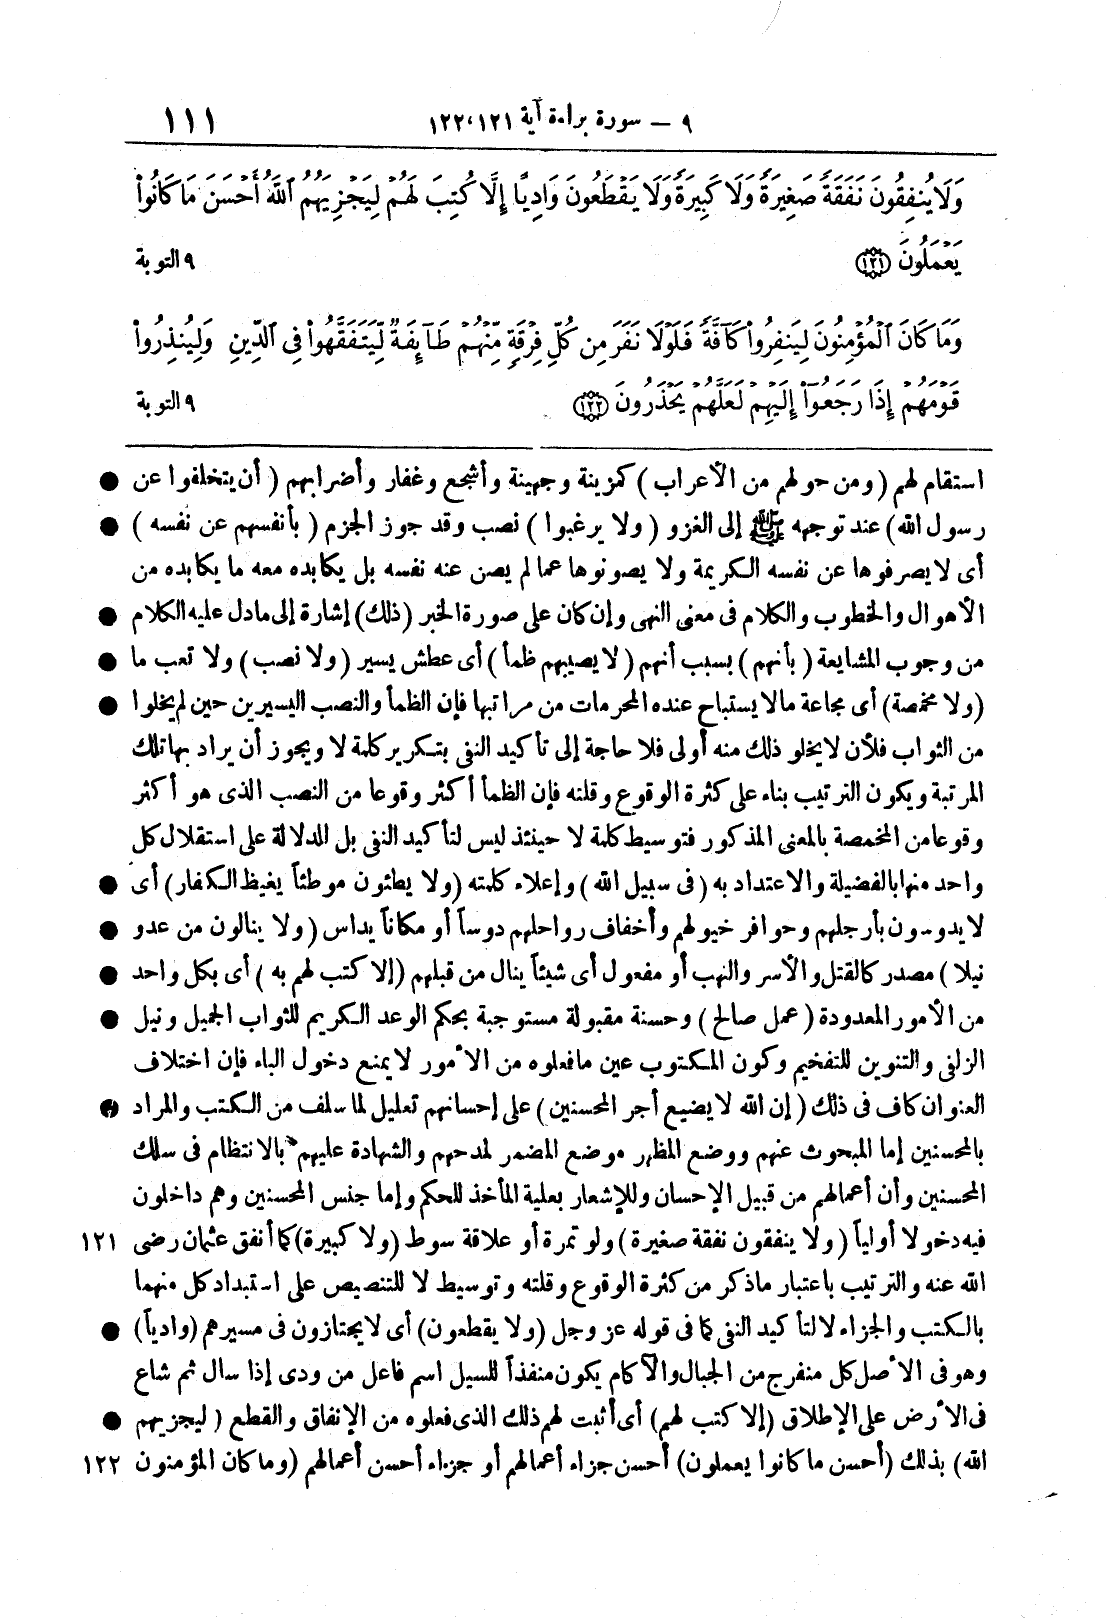 ٩ – سورة براءة آية ١٢١،١٢٢ ١١١
وَلَا يُنفِقُونَ نَفَقَةً صَغِيرَةً وَلَا كَبِيرَةً وَلَا يَقْطَعُونَ وَادِيًا إِلَّا كُتِبَ لَهُمْ لِيَجْزِيَهُمُ ٱللَّهُ أَحْسَنَ مَا كَانُوا۟
يَعْمَلُونَ ١٢١ ٩ التوبة
وَمَا كَانَ ٱلْمُؤْمِنُونَ لِيَنفِرُوا۟ كَآفَّةً فَلَوْلَا نَفَرَ مِن كُلِّ فِرْقَةٍ مِّنْهُمْ طَآئِفَةٌ لِّيَتَفَقَّهُوا۟ فِى ٱلدِّينِ وَلِيُنذِرُوا۟
قَوْمَهُمْ إِذَا رَجَعُوٓا۟ إِلَيْهِمْ لَعَلَّهُمْ يَحْذَرُونَ ١٢٢ ٩ التوبة
استقام لهم (ومن حولهم من الأعراب) كمزينة وجهينة وأشجع وغفار وأضرابهم (أن يتخلفوا عن ●
رسول الله) عند توجهه ﷺ إلى الغزو (ولا يرغبوا) نصب وقد جوز الجزم (بأنفسهم عن نفسه) ●
أى لا يصرفوها عن نفسه الكريمة ولا يصونوها عما لم يصن عنه نفسه بل يكابده معه ما يكابده من
الأهوال والخطوب والكلام فى معنى النهى وإن كان على صورة الخبر (ذلك) إشارة إلى ما دل عليه الكلام ●
من وجوب المشايعة (بأنهم) بسبب أنهم (لا يصيبهم ظمأ) أى عطش يسير (ولا نصب) ولا تعب ما ●
(ولا مخمصة) أى مجاعة ما لا يستباح عنده المحرمات من مراتبها فإن الظمأ والنصب اليسيرين حين لم يخلوا ●
من الثواب فلأن لا يخلو ذلك منه أولى فلا حاجة إلى تأكيد النفى بتكرير كلمة لا ويجوز أن يراد بها تلك
المرتبة ويكون الترتيب بناء على كثرة الوقوع وقلته فإن الظمأ أكثر وقوعا من النصب الذى هو أكثر
وقوعا من المخمصة بالمعنى المذكور فتوسيط كلمة لا حينئذ ليس لتأكيد النفى بل للدلالة على استقلال كل
واحد منها بالفضيلة والاعتداد به (فى سبيل الله) وإعلاء كلمته (ولا يطئون موطئاً يغيظ الكفار) أى ●
لا يدوسون بأرجلهم وحوافر خيولهم وأخفاف رواحلهم دوساً أو مكاناً يداس (ولا ينالون من عدو ●
نيلا) مصدر كالقتل والأسر والنهب أو مفعول أى شيئاً ينال من قبلهم (إلا كتب لهم به) أى بكل واحد ●
من الأمور المعدودة (عمل صالح) وحسنة مقبولة مستوجبة بحكم الوعد الكريم للثواب الجميل ونيل ●
الزلفى والتنوين للتفخيم وكون المكتوب عين ما فعلوه من الأمور لا يمنع دخول الباء فإن اختلاف
العنوان كاف فى ذلك (إن الله لا يضيع أجر المحسنين) على إحسانهم تعليل لما سلف من الكتب والمراد ●
بالمحسنين إما المبحوث عنهم ووضع المظهر موضع المضمر لمدحهم والشهادة عليهم بالانتظام فى سلك
المحسنين وأن أعمالهم من قبيل الإحسان وللإشعار بعلية المأخذ للحكم وإما جنس المحسنين وهم داخلون
فيه دخولا أولياً (ولا ينفقون نفقة صغيرة) ولو تمرة أو علاقة سوط (ولا كبيرة) كما أنفق عثمان رضى ١٢١
الله عنه والترتيب باعتبار ما ذكر من كثرة الوقوع وقلته وتوسيط لا للتنصيص على استبداد كل منهما
بالكتب والجزاء لا لتأكيد النفى كما فى قوله عز وجل (ولا يقطعون) أى لا يجتازون فى مسيرهم (وادياً) ●
وهو فى الأصل كل منفرج من الجبال والآكام يكون منفذاً للسيل اسم فاعل من ودى إذا سال ثم شاع
فى الأرض على الإطلاق (إلا كتب لهم) أى أثبت لهم ذلك الذى فعلوه من الإنفاق والقطع (ليجزيهم ●
الله) بذلك (أحسن ما كانوا يعملون) أحسن جزاء أعمالهم أو جزاء أحسن أعمالهم (وما كان المؤمنون ١٢٢